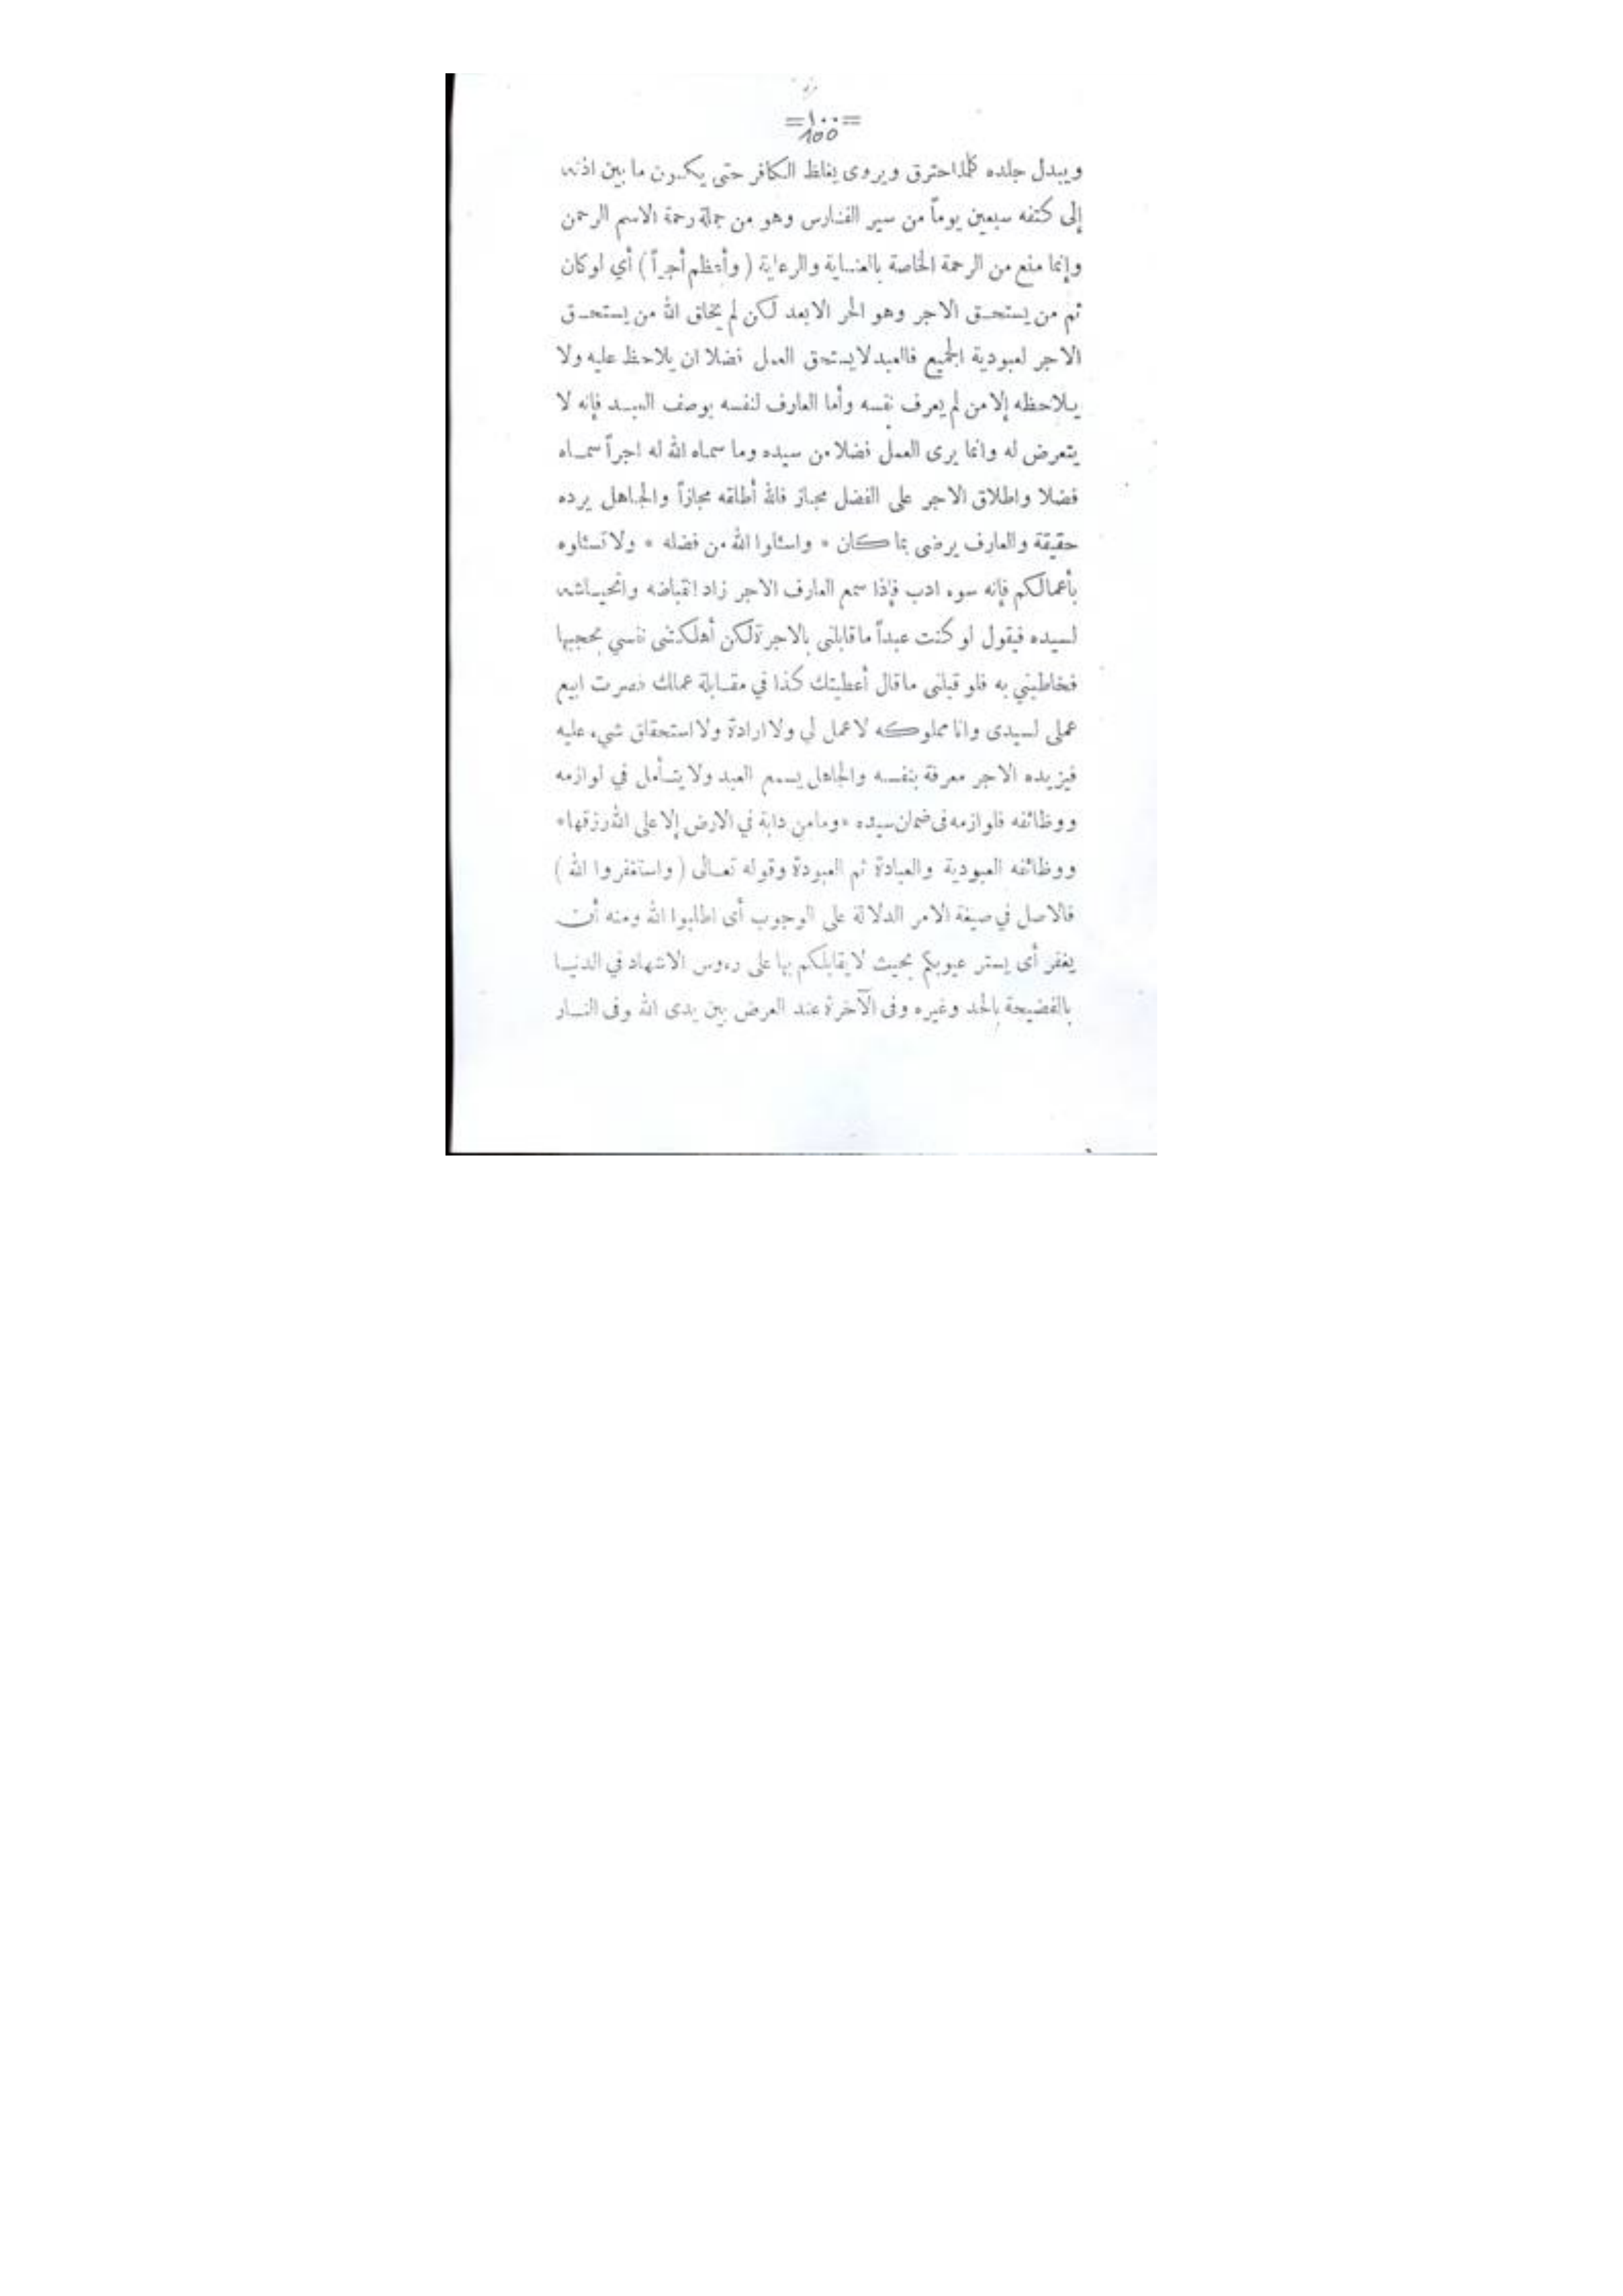 =١٠٠=
100
ويبدل جلده كلما احترق ويروى يغلظ الكافر حتى يكون ما بين اذنه
إلى كتفه سبعين يوماً من سير الفارس وهو من جملة رحمة الاسم الرحمن
وإنما منع من الرحمة الخاصة بالعناية والرعاية ( وأعظم أجراً ) أي لو كان
ثم من يستحق الاجر وهو الحر الابعد لكن لم يخلق الله من يستحق
الاجر لعبودية الجميع فالعبد لا يستحق العمل فضلا ان يلاحظ عليه ولا
يلاحظه إلا من لم يعرف نفسه وأما العارف لنفسه بوصف العبد فإنه لا
يتعرض له وانما يرى العمل فضلا من سيده وما سماه الله له اجراً سماه
فضلا واطلاق الاجر على الفضل مجاز فالله أطلقه مجازاً والجاهل يرده
حقيقة والعارف يرضى بما كان * واسئلوا الله من فضله * ولا تسئلوه
بأعمالكم فإنه سوء ادب فإذا سمع العارف الاجر زاد انقباضه وانحياشه
لسيده فيقول لو كنت عبداً ما قابلنى بالاجرة لكن أهلكتنى نفسي بحجبها
فخاطبني به فلو قبلنى ما قال أعطيتك كذا في مقابلة عملك فصرت ابيع
عملى لسيدى وانا مملوكه لا عمل لي ولا ارادة ولا استحقاق شيء عليه
فيزيده الاجر معرفة بنفسه والجاهل يسمع العبد ولا يتأمل في لوازمه
ووظائفه فلوازمه فى ضمان سيده *وما من دابة في الارض إلا على الله رزقها*
ووظائفه العبودية والعبادة ثم العبودة وقوله تعالى ( واستغفروا الله )
فالاصل في صيغة الامر الدلالة على الوجوب أى اطلبوا الله ومنه أن
يغفر أى يستر عيوبكم بحيث لا يقابلكم بها على رءوس الاشهاد في الدنيا
بالفضيحة بالحد وغيره وفى الآخرة عند العرض بين يدى الله وفى النار